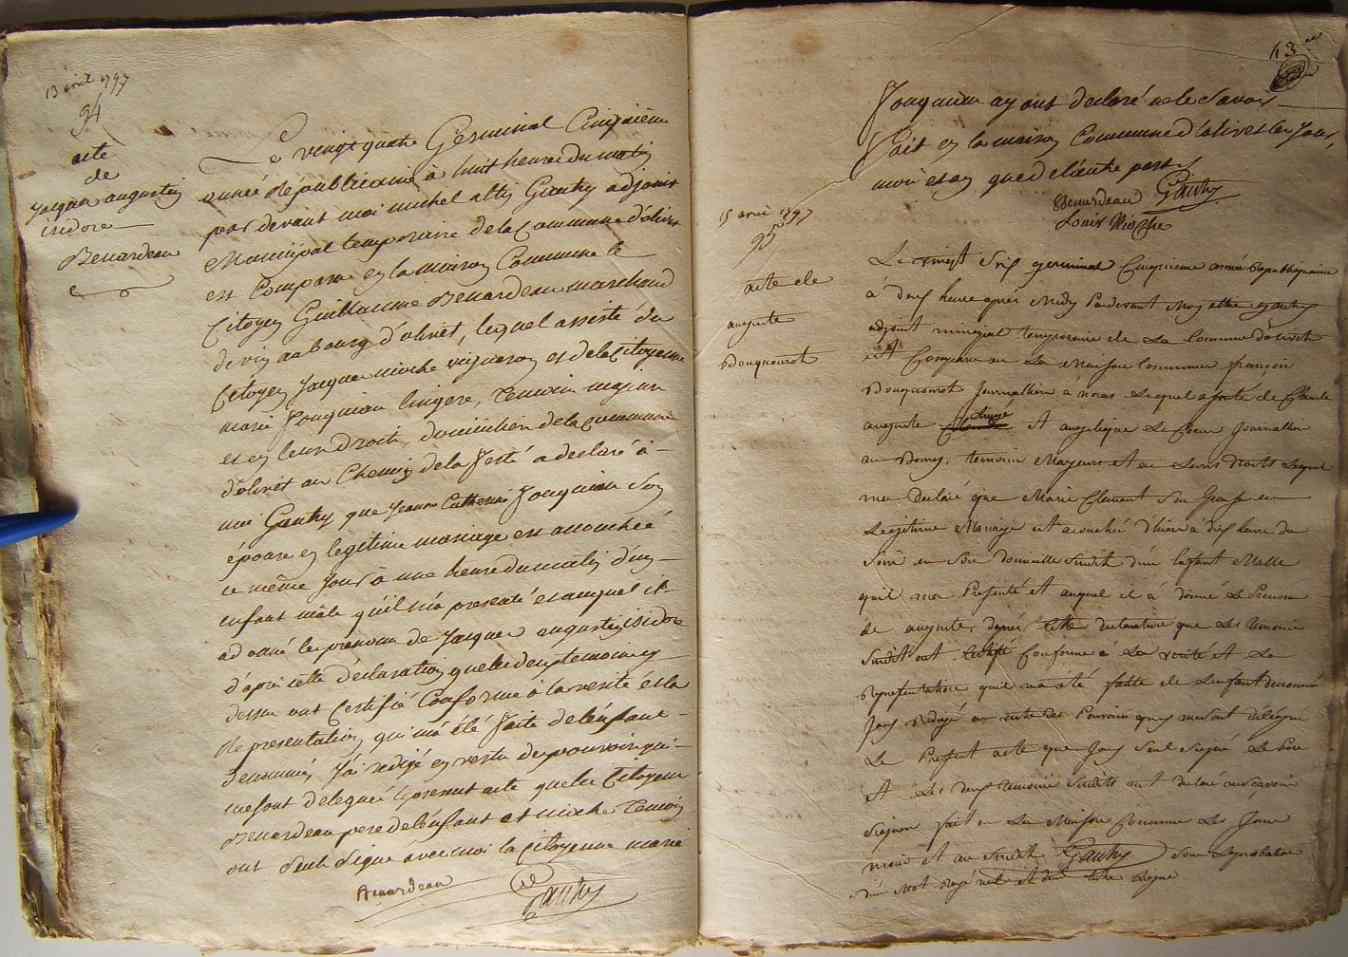 13 avril 1797
94
acte
de
jacques augustin
isidore
Benardeau
Le vingt quatre Germinal Cinquieme
année Républicaine à huit heures du matin
par devant moi michel Gauthy adjoint
Municipal temporaire de la Commune d'olivet
est Comparu en la maison Commune le
Citoyen Guillaume Benardeau marchand
de vin au bourg d'olivet, lequel assisté du
Citoyen Jacques mioche vigneron et de la Citoyenne
marie Jouquiau lingere, temoins majeurs
et en leurs Droits, domiciliés de la commune
d'olivet au Chemin de la ferté a declaré à
moi Gauthy que Jeanne Catherine Jouquiau Son
épouse en legitime mariage est accouchée
ce même Jour à une heure du matin d'un
enfant male qu'il m'a presenté et auquel il
a donné les prenoms de Jacques augustin isidore
d'après cette déclaration que les deux temoins cy
dessus ont Certifié Conforme à la verité et la
Representation qui m'a été faite de l'enfant
denommé, J'ai redigé en vertu des pouvoirs qui
me sont delegués le present acte que les Citoyens
Benardeau pere de l'enfant et mioche Temoin
ont Seuls Signé avec moi la Citoyenne marie
Benardeau Gauthy
13
Jouquiau ayant declaré ne le Savoir
Fait en la maison Commune d'olivet les Jour,
mois et an que de l'autre part
Benardeau Gauthy
Louis Mioche
15 avril 1797
95
acte de
auguste
Bouquerot
Le vingt Six germinal Cinquieme année Republiquaine
à deux heure apres Midy Pardevant Moy Gauthy
adjoint municipal temporaire de La Commune d'olivet
est Comparu en La Maison Commune françois
Bouquerot Journallier lequel assisté de
auguste Et angelique Journallier
au Bourg, temoins Majeurs et en Leurs droits Lequel
ma Declaré que Marie Clement Son Epouse en
Legitime Mariage est acouchée d'hier à dix heure du
Soir en Son domicille Susdit d'un Enfant Malle
quil ma Presenté Et auquel il à donné Le Prenom
de auguste, dapres Cette declaration que Les temoins
Susdit ont Certifié Conforme a La verité Et La
Representation quil ma été faitte de L'enfant denommé
Jay Redigé en vertu des Pouvoirs qui me sont délégué
Le Present acte que Jay Seul Signé Le Pere
Et Les deux temoins Susdits ont declaré ne Savoir
Signer fait en La Maison Commune Les Jour
mois et an Susdit Gauthy